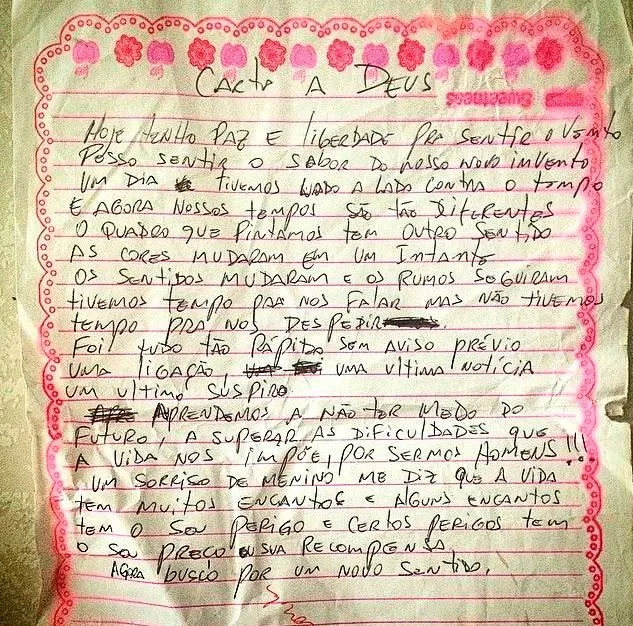 Carta a Deus
sweetness
Hoje tenho paz e liberdade pra sentir o vento
Posso sentir o sabor do nosso novo invento
Um dia tivemos lado a lado contra o tempo
E agora nossos tempos são tão diferentes
O quadro que pintamos tem outro sentido
As cores mudaram em um intante
Os sentidos mudaram e os rumos seguiram
tivemos tempo pra nos falar mas não tivemos
tempo pra nos despedir.
Foi tudo tão rápido sem aviso prévio
uma ligação, uma ultima notícia
um ultimo suspiro
Aprendemos a não ter medo do
futuro, a superar as dificuldades que
a vida nos impõe, por sermos homens!!!
Um sorriso de menino me diz que a vida
tem muitos encantos e alguns encantos
tem o seu perigo e certos perigos tem
o seu preço ou sua recompensa
Agora busco por um novo sentido.